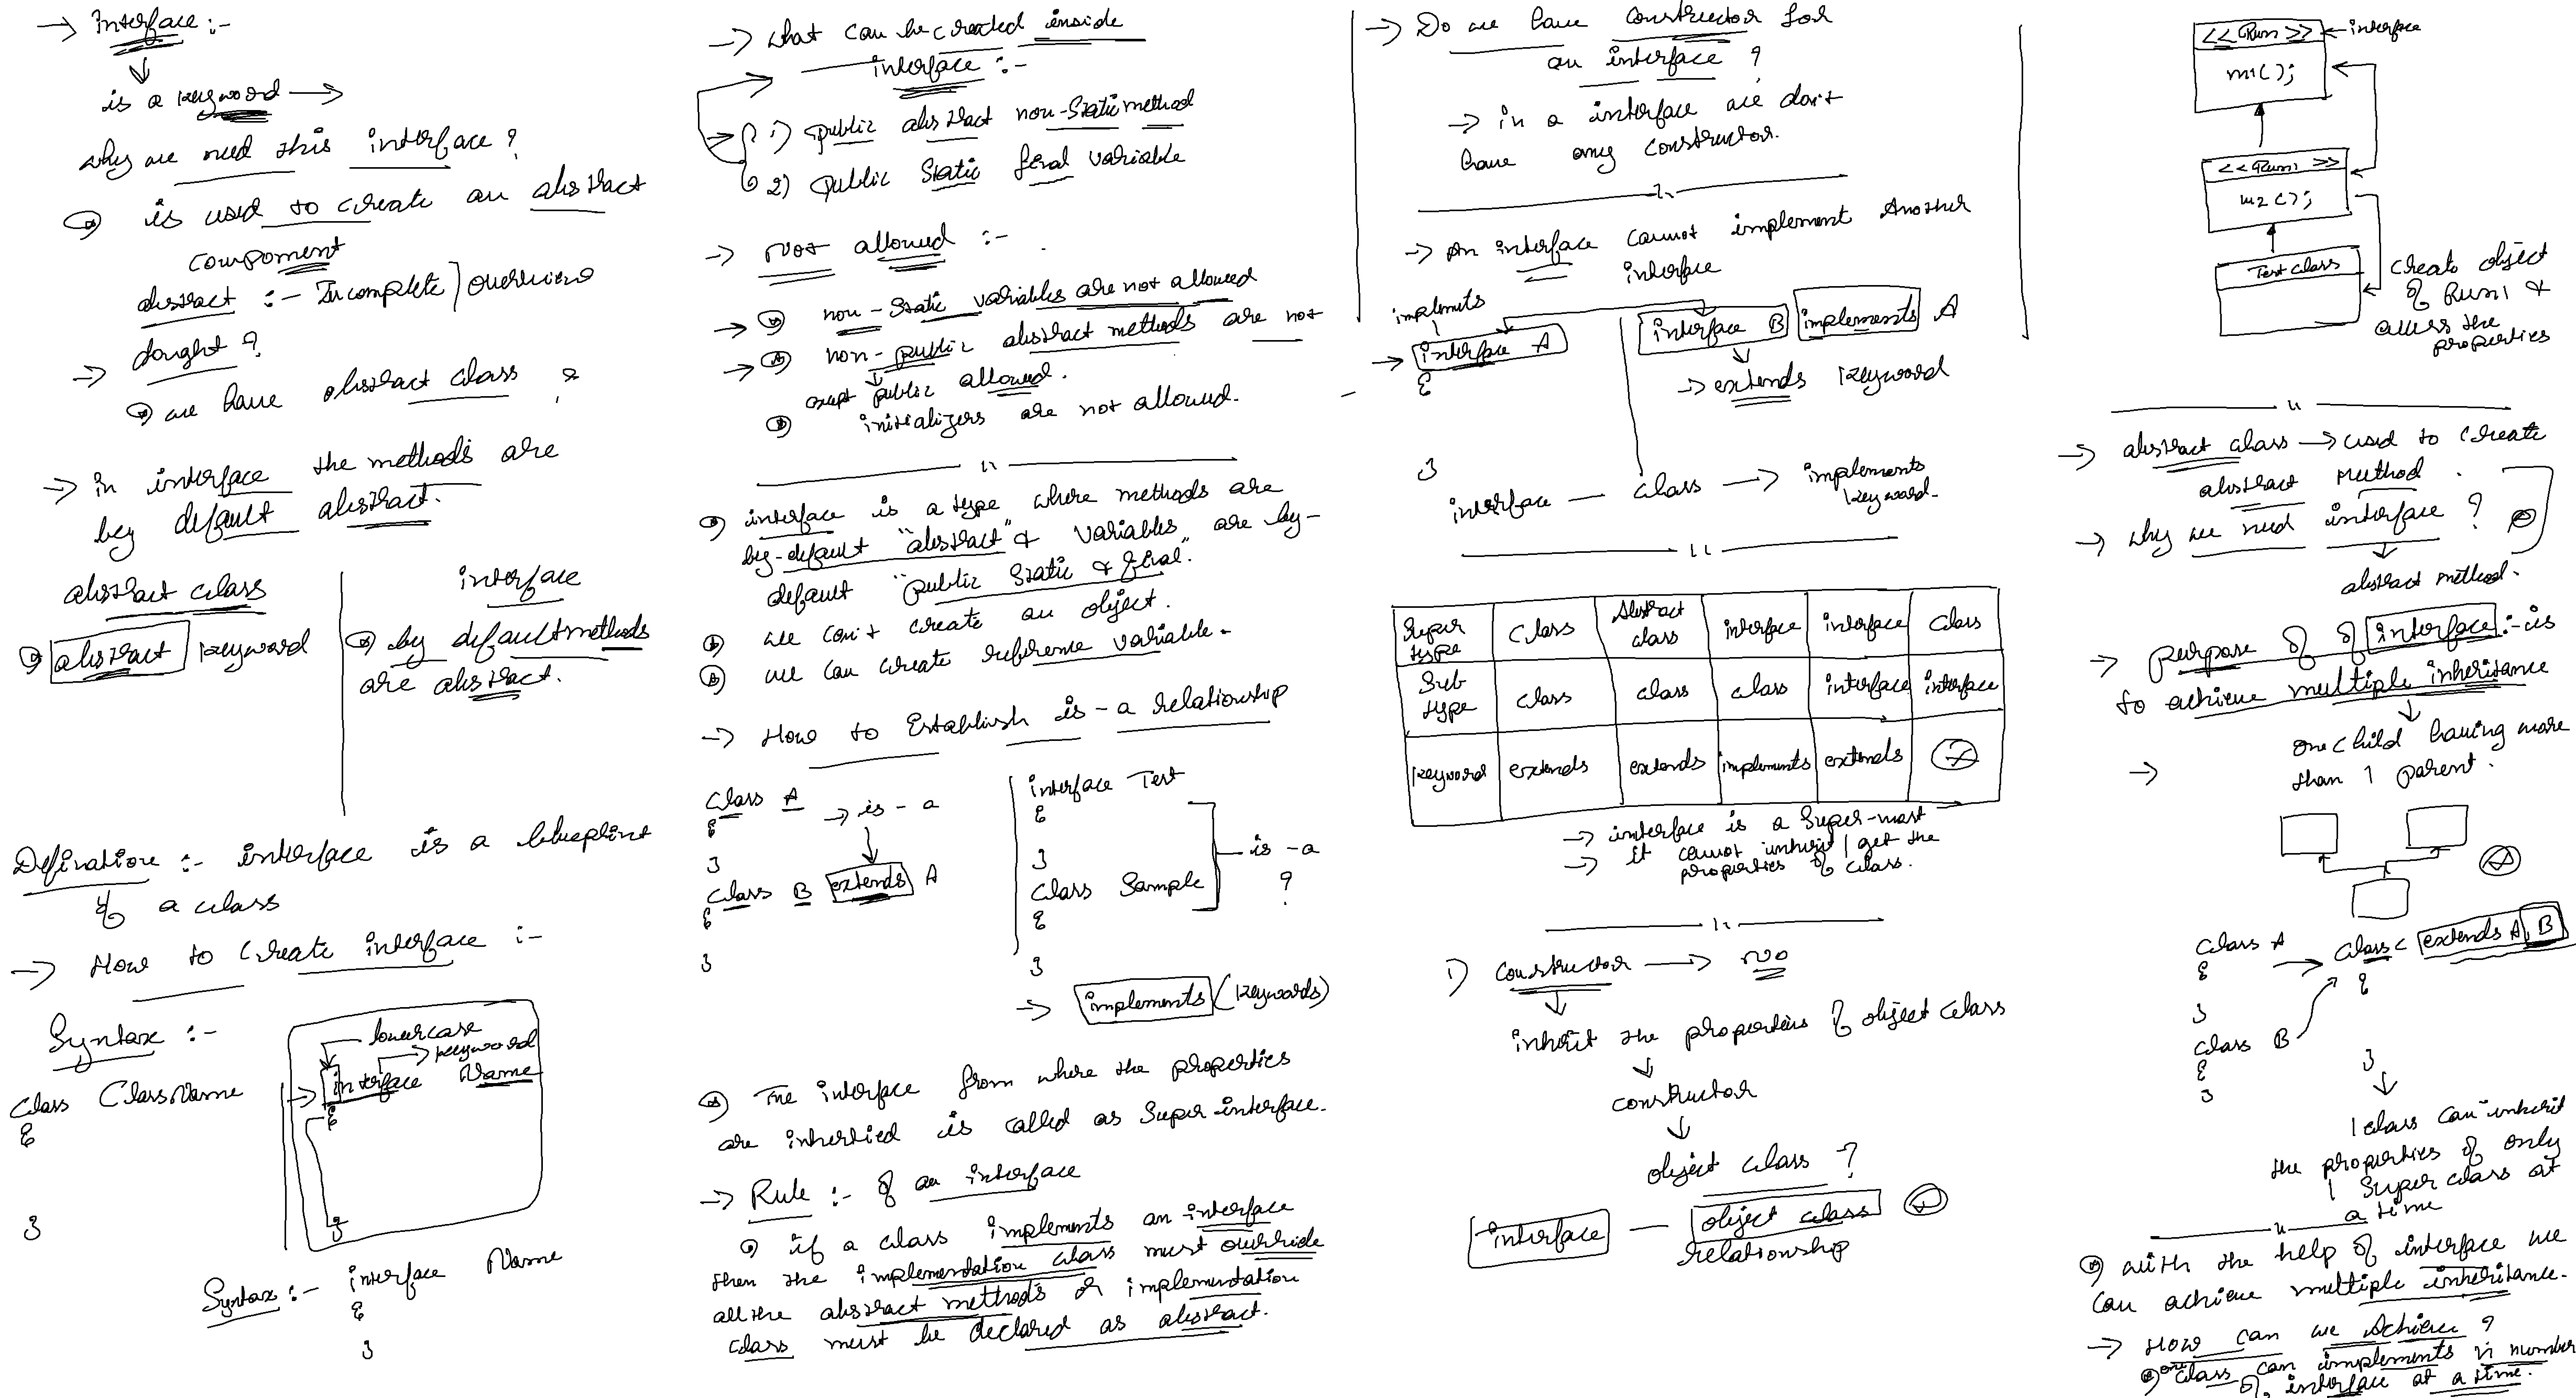 → Interface :-
is a keyword →
why we need this interface ?
is used to create an abstract
component
abstract :- Incomplete / overview
→ dought ?
we have abstract class ?
→ in interface the methods are
by default abstract.
abstract class
abstract keyword
interface
by default methods
are abstract.
Defination :- interface is a blueprint
of a class
→ How to create interface :-
Syntax :-
class ClassName
{
}
lowercase
→ keyword
→ interface Name
{
}
Syntax :- interface Name
{
}
→ what can be created inside
interface :-
1) public abstract non-static method
2) public static final variable
→ Not allowed :-
→ non-static variables are not allowed
→ non-public abstract methods are not
except public allowed.
initializers are not allowed.
interface is a type where methods are
by-default "abstract" & variables are by-
default "public static & final."
we can't create an object.
we can create reference variable.
→ How to Establish is-a relationship
class A → is-a
{
}
class B extends A
{
}
interface Test
{
}
class Sample
{
}
is-a
?
→ implements (keywords)
The interface from where the properties
are inhertied is called as Super-interface.
→ Rule :- of an interface
if a class implements an interface
then the implementation class must override
all the abstract methods or implementation
class must be declared as abstract.
→ Do we have constructor for
an interface ?
→ in a interface we don't
have any constructor.
→ An interface cannot implement Another
interface
implements
→ interface A
{
}
interface B implements A
→ extends keyword
interface — class → implements
keyword.
Super type class Abstract class interface interface class
Sub type class class class interface interface
keyword extends extends implements extends ✗
→ interface is a super-most
→ it cannot inherit / get the
properties of class.
1) constructor → no
inherit the properties of object class
constructor
object class ?
interface — object class
relationship
<<Run>> ← interface
m1();
<<Run1>>
m2();
Test class
create object
of Run1 &
access the
properties
→ abstract class → used to create
abstract method.
→ why we need interface ?
abstract method.
→ purpose of of interface :- is
to achieve multiple inheritance
one child having more
than 1 parent.
→
class A
{
}
class B
{
}
class C extends A, B
{
}
1 class can inherit
the properties of only
1 super class at
a time
with the help of interface we
can achieve multiple inheritance.
→ How can we Achieve ?
one class can implements n number
of interface at a time.